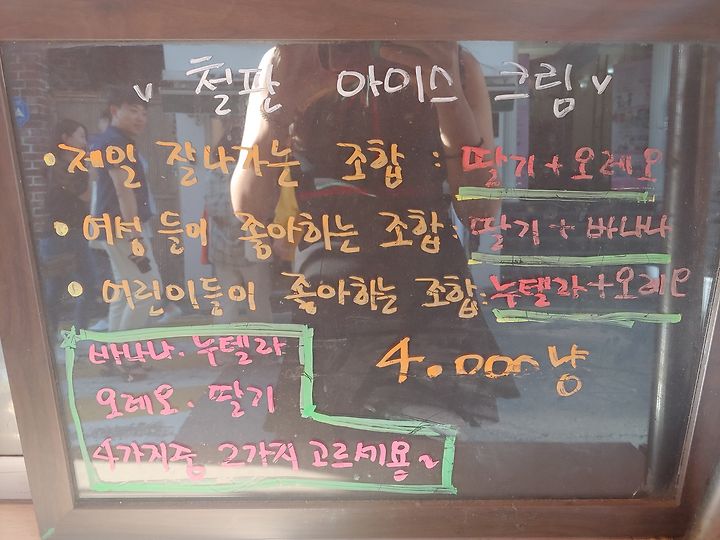 v 철판 아이스 크림 v
• 제일 잘나가는 조합 : 딸기 + 오레오
• 여성들이 좋아하는 조합 : 딸기 + 바나나
• 어린이들이 좋아하는 조합 : 누텔라 + 오레오
바나나 · 누텔라
오레오 · 딸기
4가지중 2가지 고르세용~
4.000냥